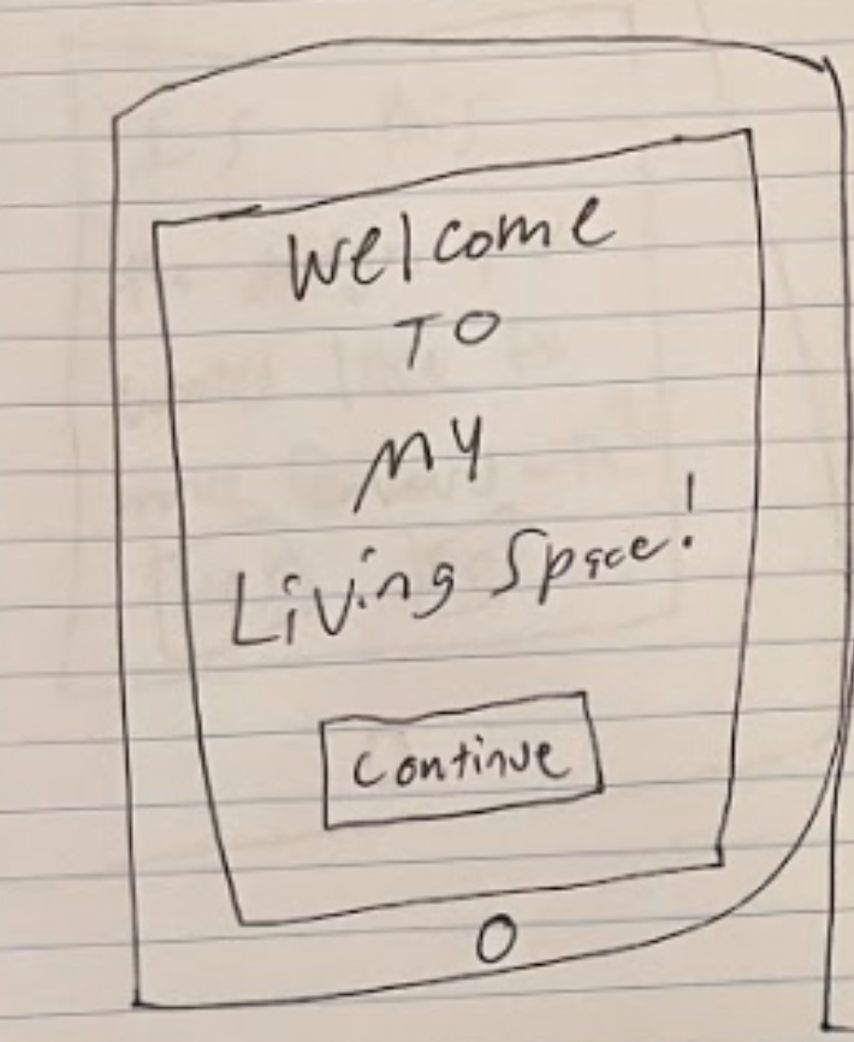 Welcome
TO
MY
Living Space!
Continue